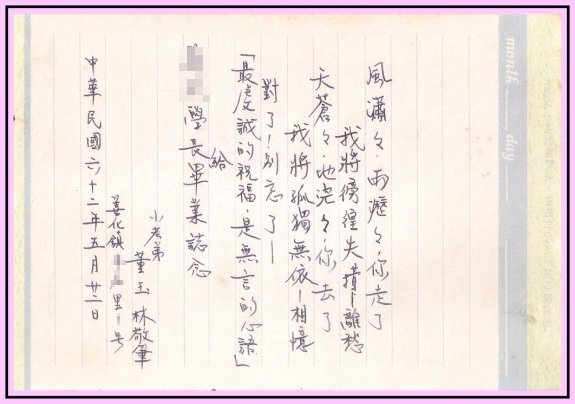 month day
風瀟々,雨瀝々,你走了
我將徬徨失措—離愁
天蒼々,地茫々,你去了
我將孤獨無依—相憶
對了!別忘了—
「最虔誠的祝福,是無言的心語」
給
學長畢業誌念
小老弟
董玉林敬筆
善化鎮里—号
中華民國六十二年五月廿二日